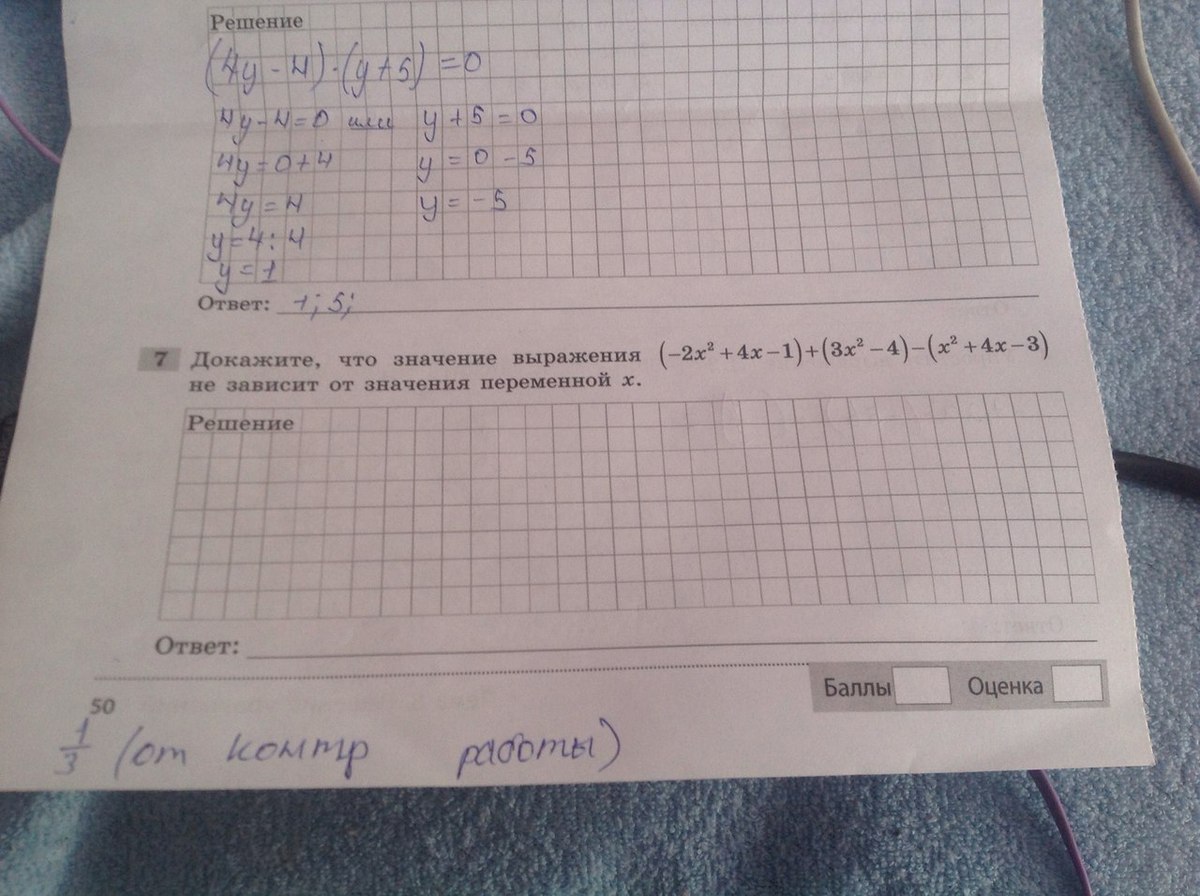 Решение
(4y - 4) · (y + 5) = 0
4y - 4 = 0 или y + 5 = 0
4y = 0 + 4 y = 0 - 5
4y = 4 y = - 5
y = 4 : 4
y = 1
Ответ: 1; 5;
7 Докажите, что значение выражения (−2x² + 4x − 1) + (3x² − 4) − (x² + 4x − 3)
не зависит от значения переменной x.
Решение
Ответ:
Баллы Оценка
50
1/3 (от контр работы)